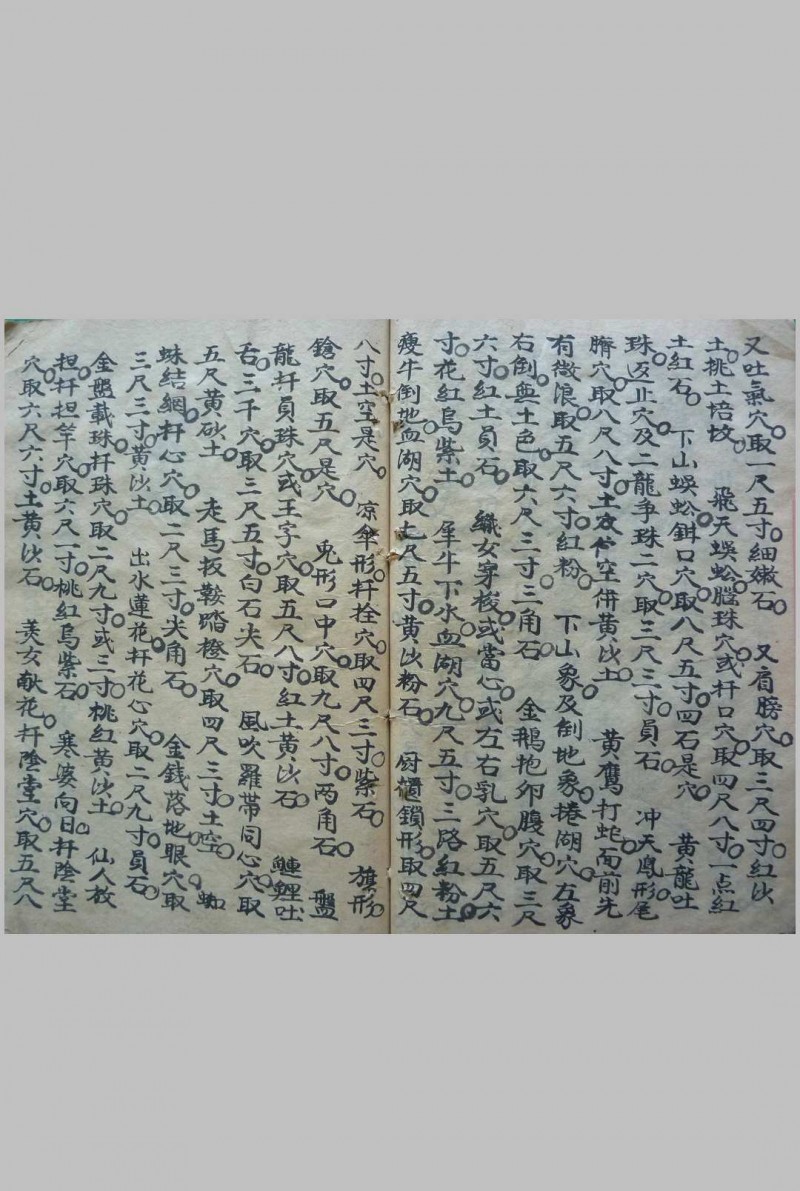 又吐氣穴取一尺五寸細嫩石　又肩膀穴取三尺四寸紅沙
土桃土培坟　飛天蜈蚣腦珠穴或扦口穴取四尺八寸一点紅
土紅石　下山蜈蚣鉗口穴取八尺五寸四石是穴　黃龍吐
珠返止穴及二龍爭珠二穴取三尺三寸員石　冲天鳳形尾
臍穴取八尺八寸土穴空併黃沙土　黃鷹打蛇面前先
有微浪取五尺六寸紅粉　下山象及倒地象捲湖穴左象
右倒與土色取六尺三寸三角石　金鵝抱卵腹穴取三尺
六寸紅土員石　織女穿梭或當心或左右乳穴取五尺六
寸花紅烏紫土　犀牛下水血湖穴九尺五寸三路紅粉土
瘦牛倒地血湖穴取七尺五寸黃沙粉石　厨櫃鎖形取四尺
八寸土空是穴　凉傘形扦拴穴取四尺三寸紫石　旗形
鎗穴取五尺是穴　兎形口中穴取九尺八寸两角石　盤
龍扦員珠穴或王字穴取五尺八寸紅土黃沙石　鰱鯉吐
舌三千穴取三尺五寸白石尖石　風吹羅帶同心穴取
五尺黃砂土　走馬扳鞍踏橙穴取四尺三寸土空　蜘
蛛結網扦心穴取二尺三寸尖角石　金錢落地眼穴取
三尺三寸黃沙土　出水蓮花扦花心穴取二尺九寸員石
金盤載珠扦珠穴取二尺九寸或三寸桃紅黃沙土　仙人放
担扦担竿穴取六尺二寸桃紅烏紫石　寒婆向日扦陰堂
穴取六尺六寸土黃沙石　美女献花扦陰堂穴取五尺八